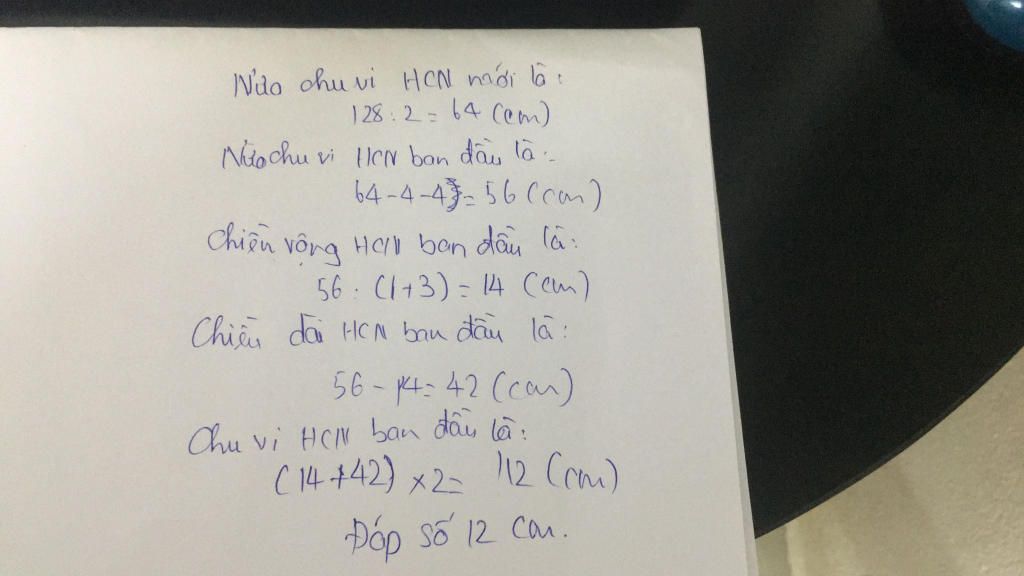 Nửa chu vi HCN mới là:
128 : 2 = 64 (cm)
Nửa chu vi HCN ban đầu là:
64 - 4 - 4 = 56 (cm)
Chiều rộng HCN ban đầu là:
56 : (1+3) = 14 (cm)
Chiều dài HCN ban đầu là:
56 - 14 = 42 (cm)
Chu vi HCN ban đầu là:
(14 + 42) x 2 = 112 (cm)
Đáp số 12 cm.